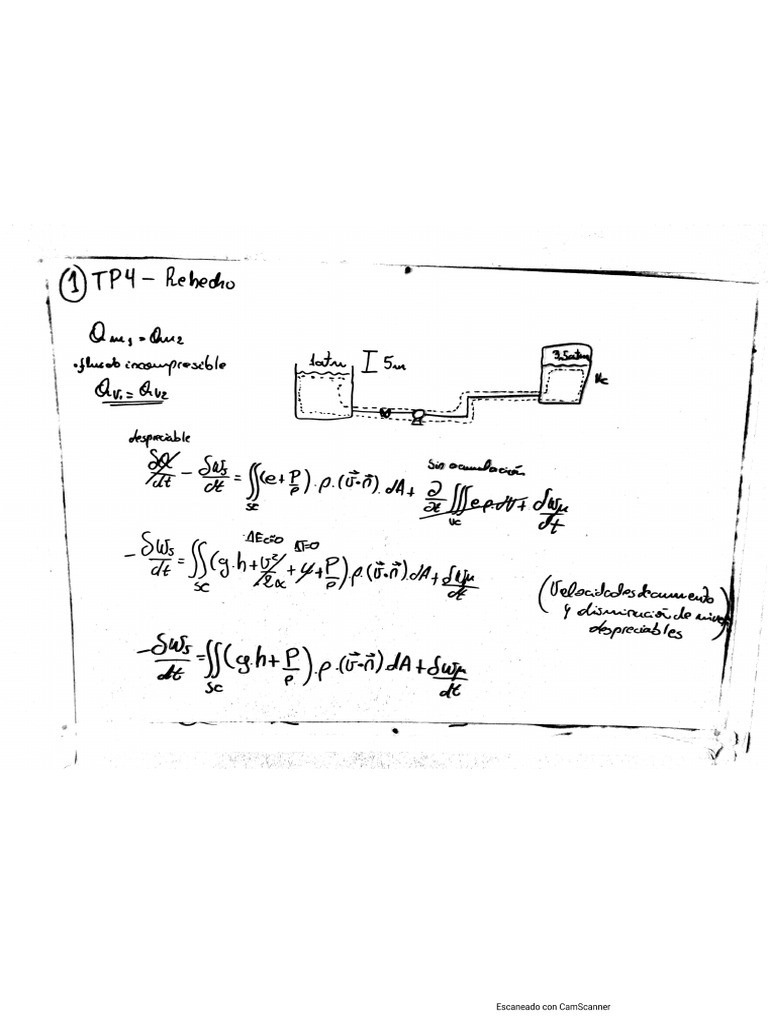 ① TP4 - Rehecho
Qm1 = Qm2
• fluido incompresible
Qv1 = Qv2
1atm
5m
3.5atm
Vc
despreciable
sin acumulación
δQ/dt - δWs/dt = ∬sc (e + P/ρ).ρ.(v⃗·n⃗).dA + ∂/∂t ∭vc e.ρ.dV + δWμ/dt
ΔEc=0 ΔT=0
-δWs/dt = ∬sc (g.h + v²/2α + u + P/ρ).ρ.(v⃗·n⃗).dA + δWμ/dt
(Velocidades de aumento
y disminución de nivel
despreciables)
-δWs/dt = ∬sc (g.h + P/ρ).ρ.(v⃗·n⃗).dA + δWμ/dt
Escaneado con CamScanner